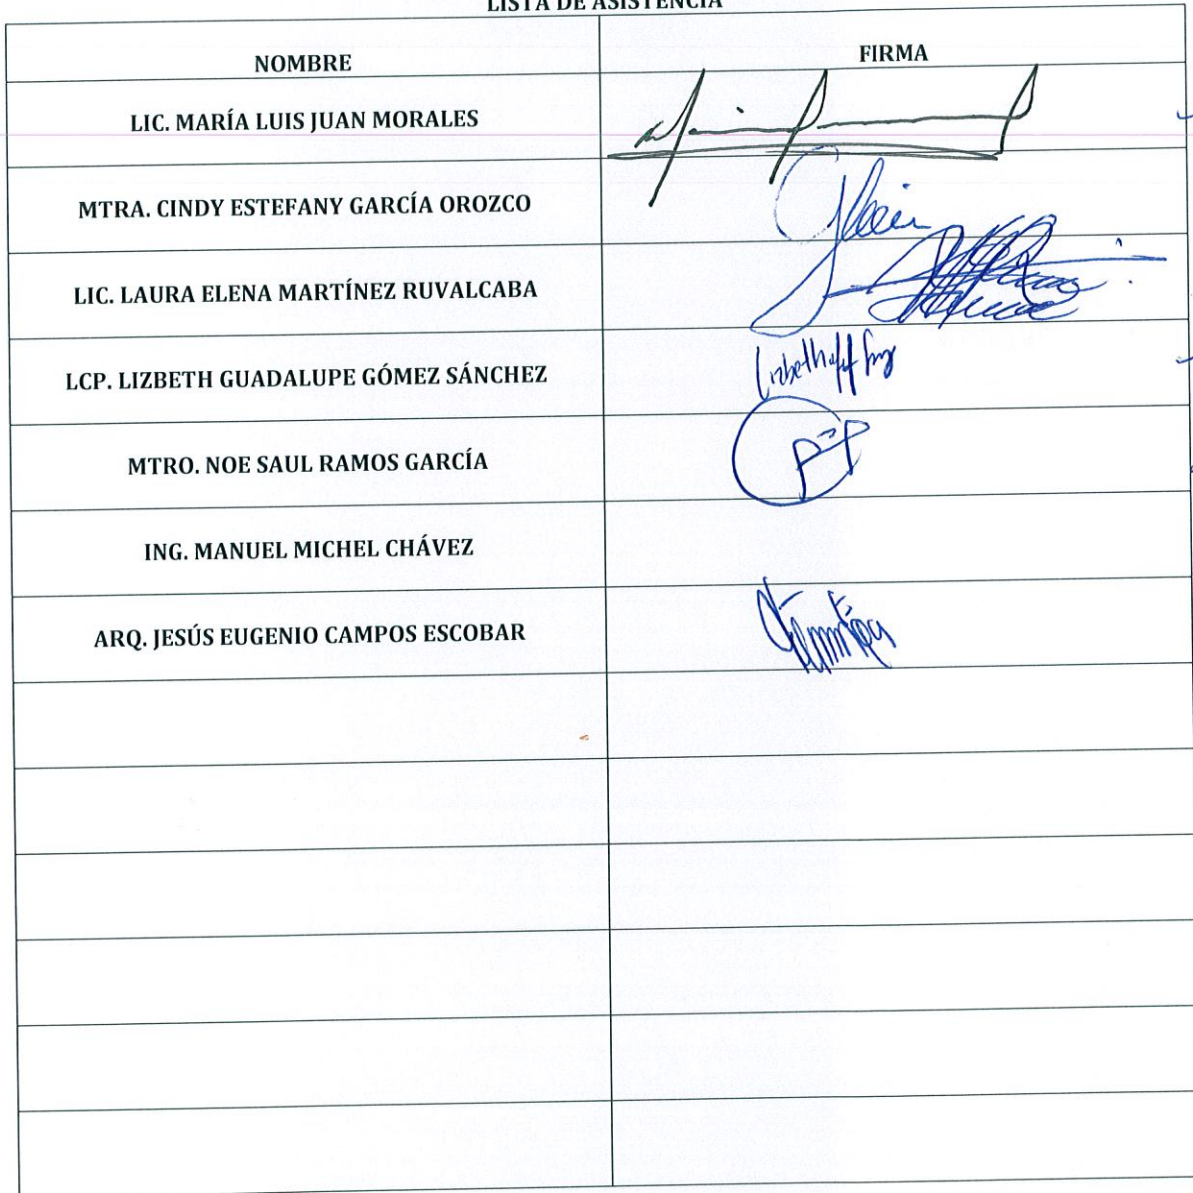 LISTA DE ASISTENCIA
NOMBRE
FIRMA
LIC. MARÍA LUIS JUAN MORALES
MTRA. CINDY ESTEFANY GARCÍA OROZCO
LIC. LAURA ELENA MARTÍNEZ RUVALCABA
LCP. LIZBETH GUADALUPE GÓMEZ SÁNCHEZ
MTRO. NOE SAUL RAMOS GARCÍA
ING. MANUEL MICHEL CHÁVEZ
ARQ. JESÚS EUGENIO CAMPOS ESCOBAR